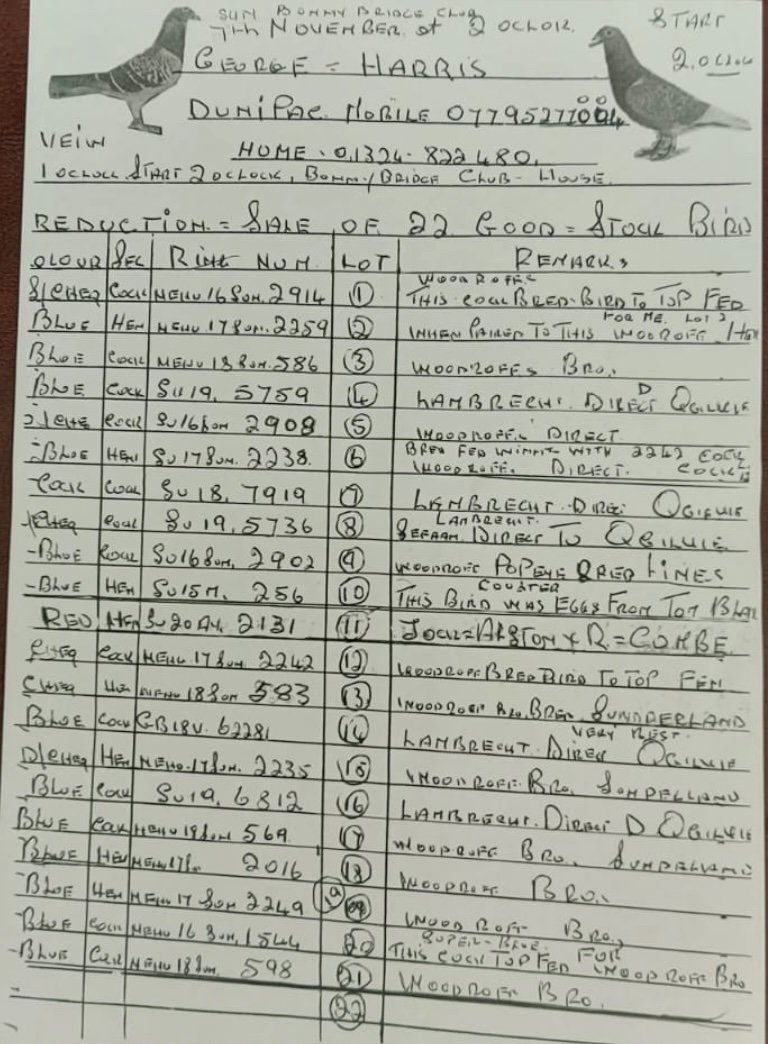 SUN BONNY BRIDGE CLUB
7th NOVEMBER at 2 OCLOCK.
START
2.OCLOCK
GEORGE = HARRIS
DUNIPAC. MOBILE 07795277004
VEIW
HOME. 01324-822480.
1 OCLOCK START 2 OCLOCK, BONNY/BRIDGE CLUB-HOUSE.
REDUCTION = SALE OF 22 GOOD = STOCK BIRD
OLOUR SEX RING NUM. LOT REMARKS
WOODROFFE
CHEQ COCK NEHU 16 SUN. 2914 1 THIS COCK BRED-BIRD TO TOP FED
FOR ME. LOT 2
BLUE HEN NEHU 17 SUN. 2259 2 WHEN PAIRED TO THIS WOODROFF HEN
BLUE COCK NEHU 18 SUN. 586 3 WOODROFFS BRO.
BLUE COCK SU 19. 5759 4 LAMBRECHT. DIRECT D OGILVIE
CHE COCK SU 16 SUN 2908 5 WOODROFF. DIRECT
BRED FED WINNER WITH 2242 COCK
BLUE HEN SU 17 SUN. 2238. 6 WOODROFF. DIRECT. COCK
COCK COCK SU 18. 7919 7 LAMBRECHT. DIREC OGILVIE
LAMBRECHT.
CHEQ COCK SU 19. 5736 8 GEFAAM. DIRECT TO OGILVIE
-BLUE COCK SU 16 SUN. 2902 9 WOODROFF POPEYE & RED LINES
COUSTER
-BLUE HEN SU 15 N. 256 10 THIS BIRD WAS EGGS FROM TOM BLAC
RED HEN SU 20 2131 11 JOCK = ALSTON & R. = COMBE
CHEQ COCK NEHU 17 SUN 2242 12 WOODROFF BRED BIRD TO TOP FEN
CHEQ HEN NEHU 18 SUN 583 13 WOODROFF BRO. BRED. SUNDERLAND
VERY BEST.
BLUE COCK GB 18 V. 62281 14 LAMBRECHT. DIREC OGILVIE
D/CHEQ HEN NEHU. 17 SUN. 2235 15 WOODROFF BRO. SUNDELLAND
BLUE COCK SU 19. 6812 16 LAMBRECHT. DIRECT D OGILVIE
BLUE COCK NEHU 18 SUN 569. 17 WOODROFF BRO. SUNDELLAND
BLUE HEN NEHU 17 2016 18 WOODROFF BRO.
BLUE HEN NEHU 17 SUN 2249 19 WOODROFF BRO.
SUPER-BLUE.
BLUE COCK NEHU 16 SUN. 1544 20 THIS COCK TOP FED FOR WOODROFF BRO
-BLUE COCK NEHU 18 SUN. 598 21 WOODROFF BRO.
22